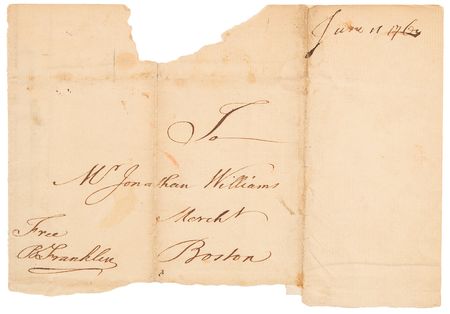 June 11 176
To
Mr Jonathan Williams
Mercht
Boston
Free
B Franklin